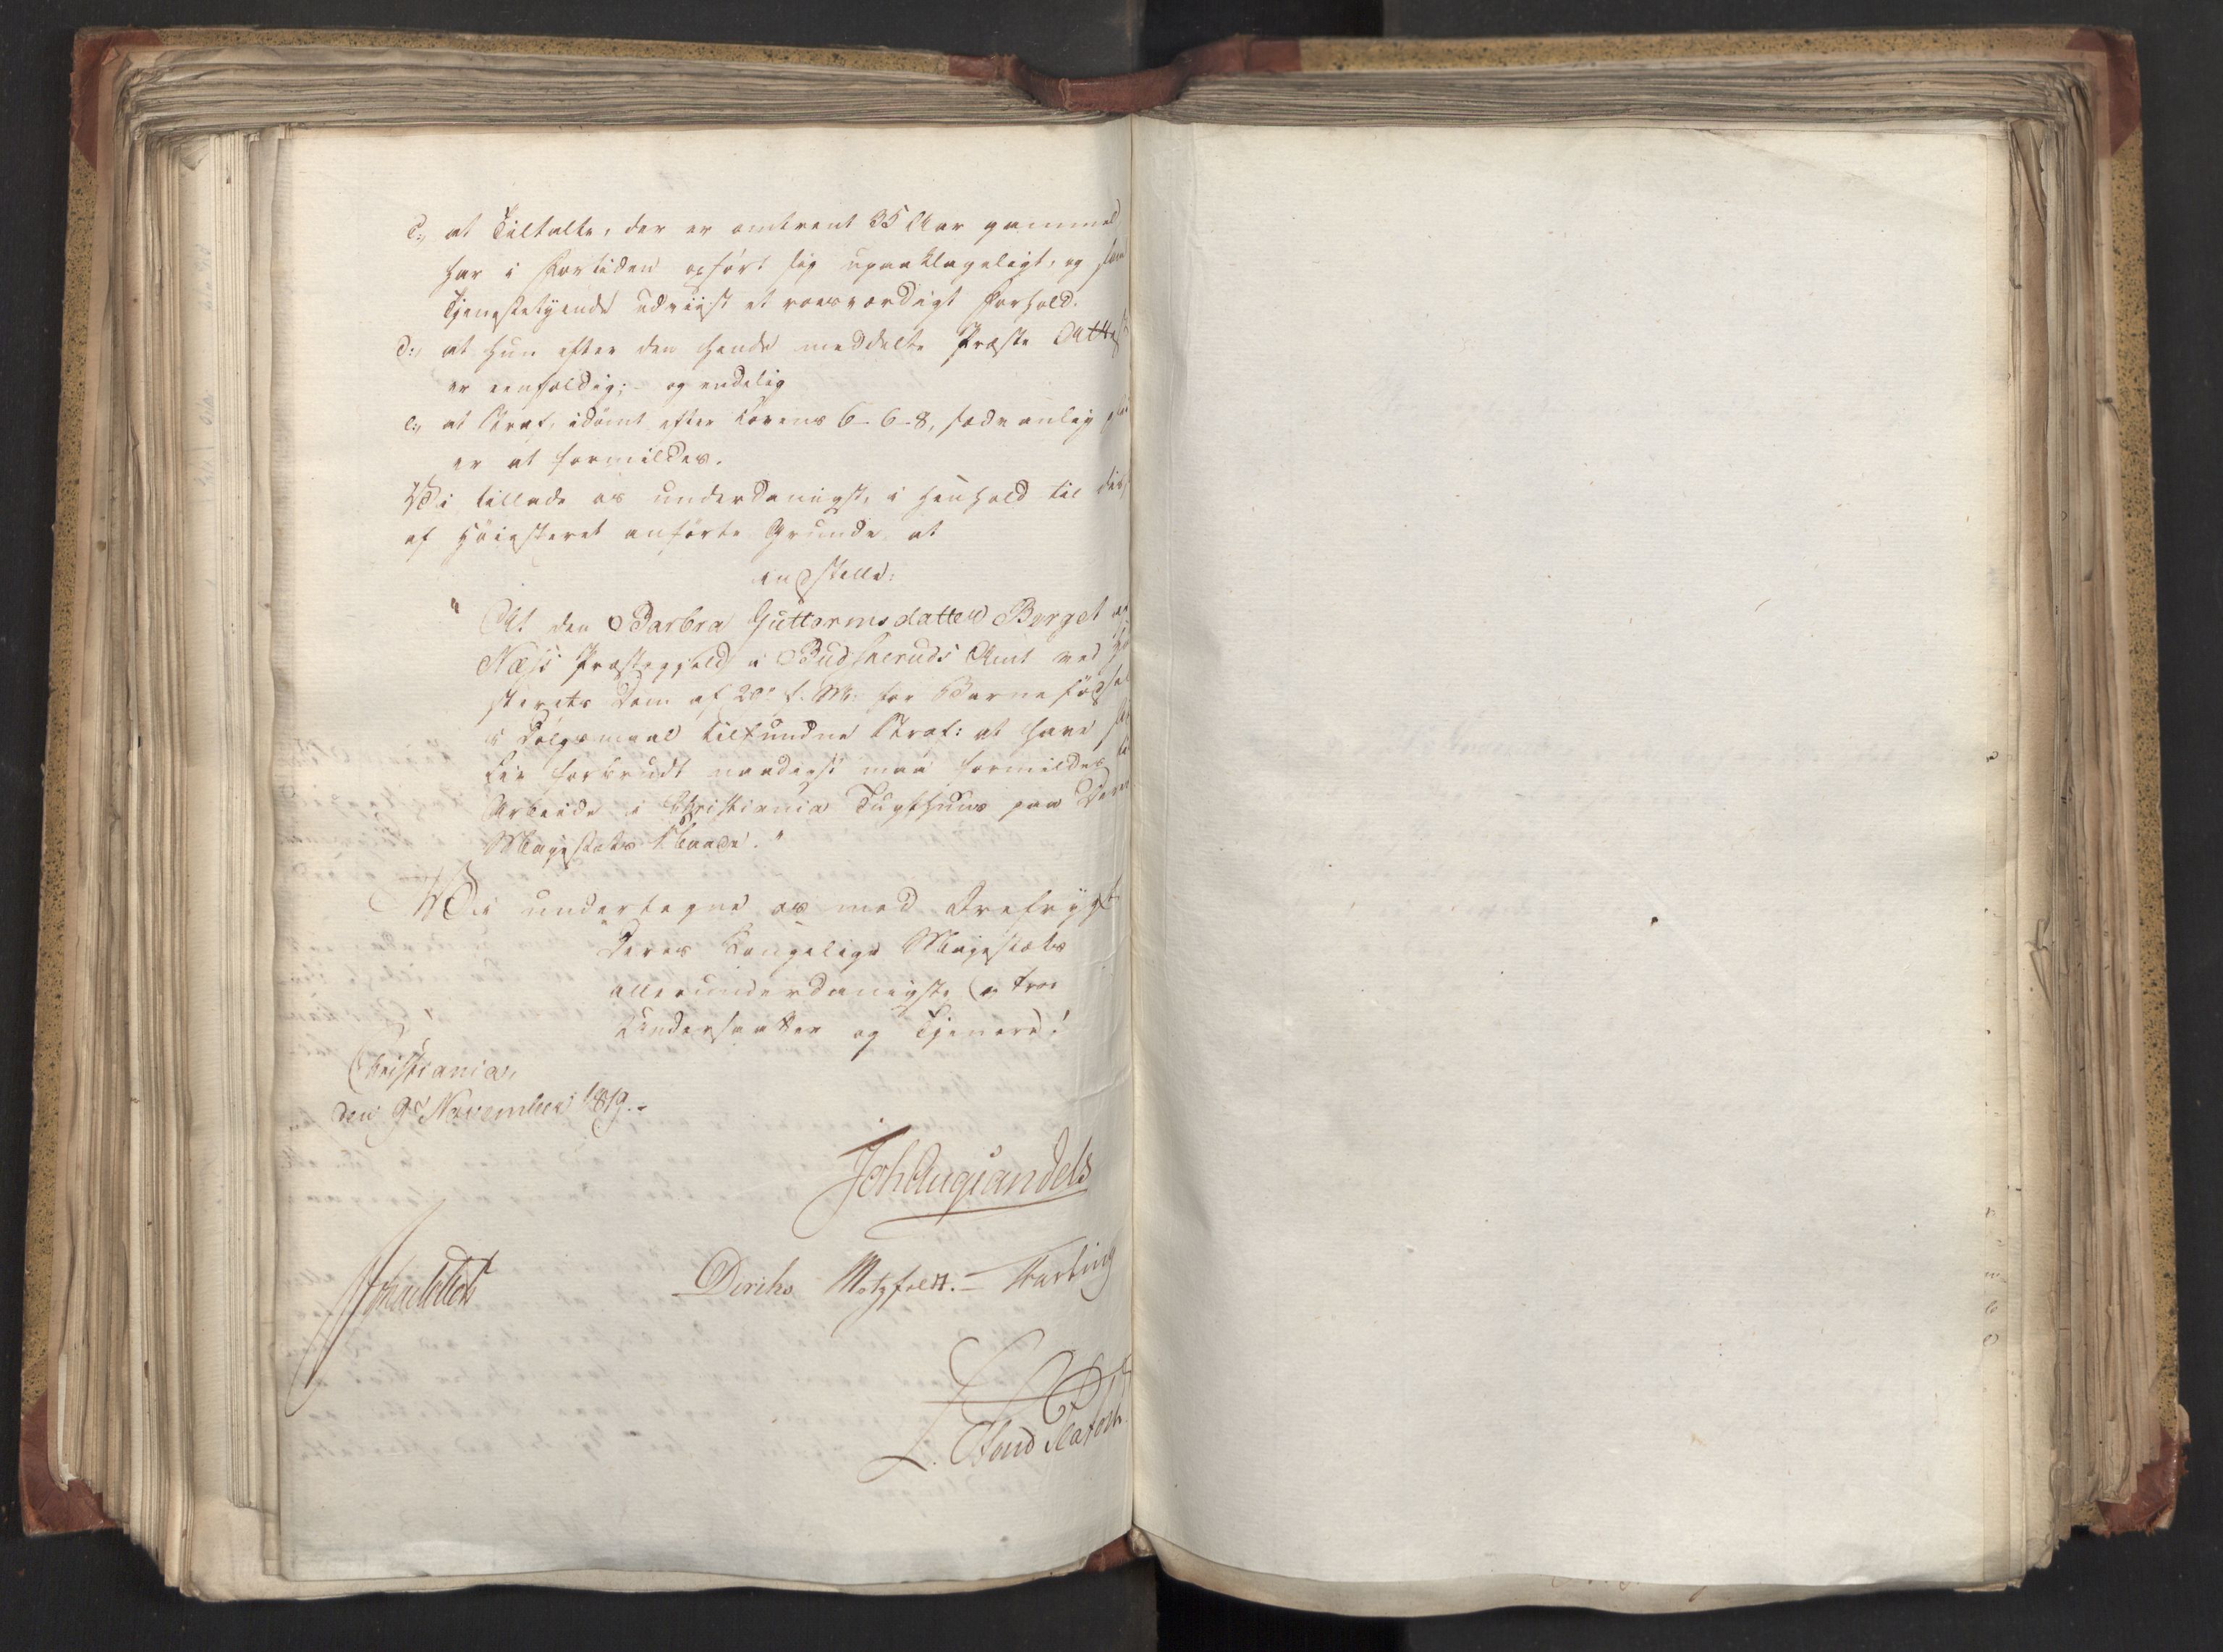 c., at Tiltalte, der er omtrent 35 Aar gammel
har i Fortiden opført sig upaaklageligt, og som
Tjenestetyende udviist et roesværdigt Forhold.
d., at hun efter den hende meddelte Præste Attest
er eenfoldig; og endelig
e., at Straf, idømt efter Lovens 6-6-8, sædvanlig
er at formildes.
Vi tillade os underdanigst, i Henhold til disse
af Höiesteret anførte Grunde at
indstille:
"At den Barbra Guttormsdatter Berget af
Næss Præstegjeld i Budskeruds Amt ved Hö-
iesterets Dom af 20de f. M. for Barnefødsel
i Dølgsmaal tilfundne Straf: at have sit
Liv forbrudt naadigst maa formildes til
Arbeide i Christiania Tugthuus paa Deres
Majestæts Naade."
Vi undertegne os med Ærefrygt
Deres Kongelige Majestæts
allerunderdanigste og troe
Undersaatter og Tjenere!
Christiania,
den 9de November 1819.-
Joh Aug Sandels
Diriks Motzfeldt. Krebting